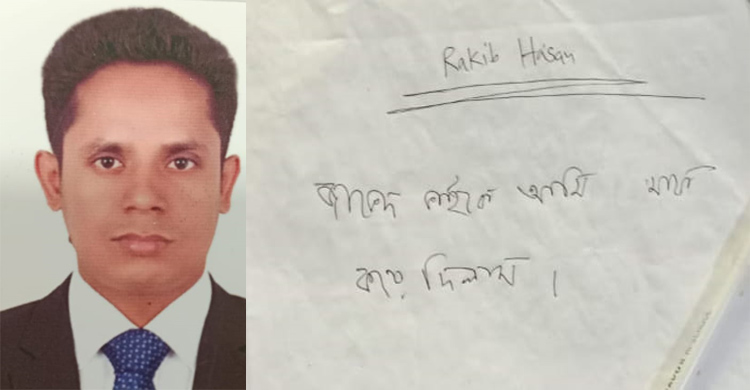 Rakib Hasan
জাবেদ ভাইকে আমি মাফ
করে দিলাম।